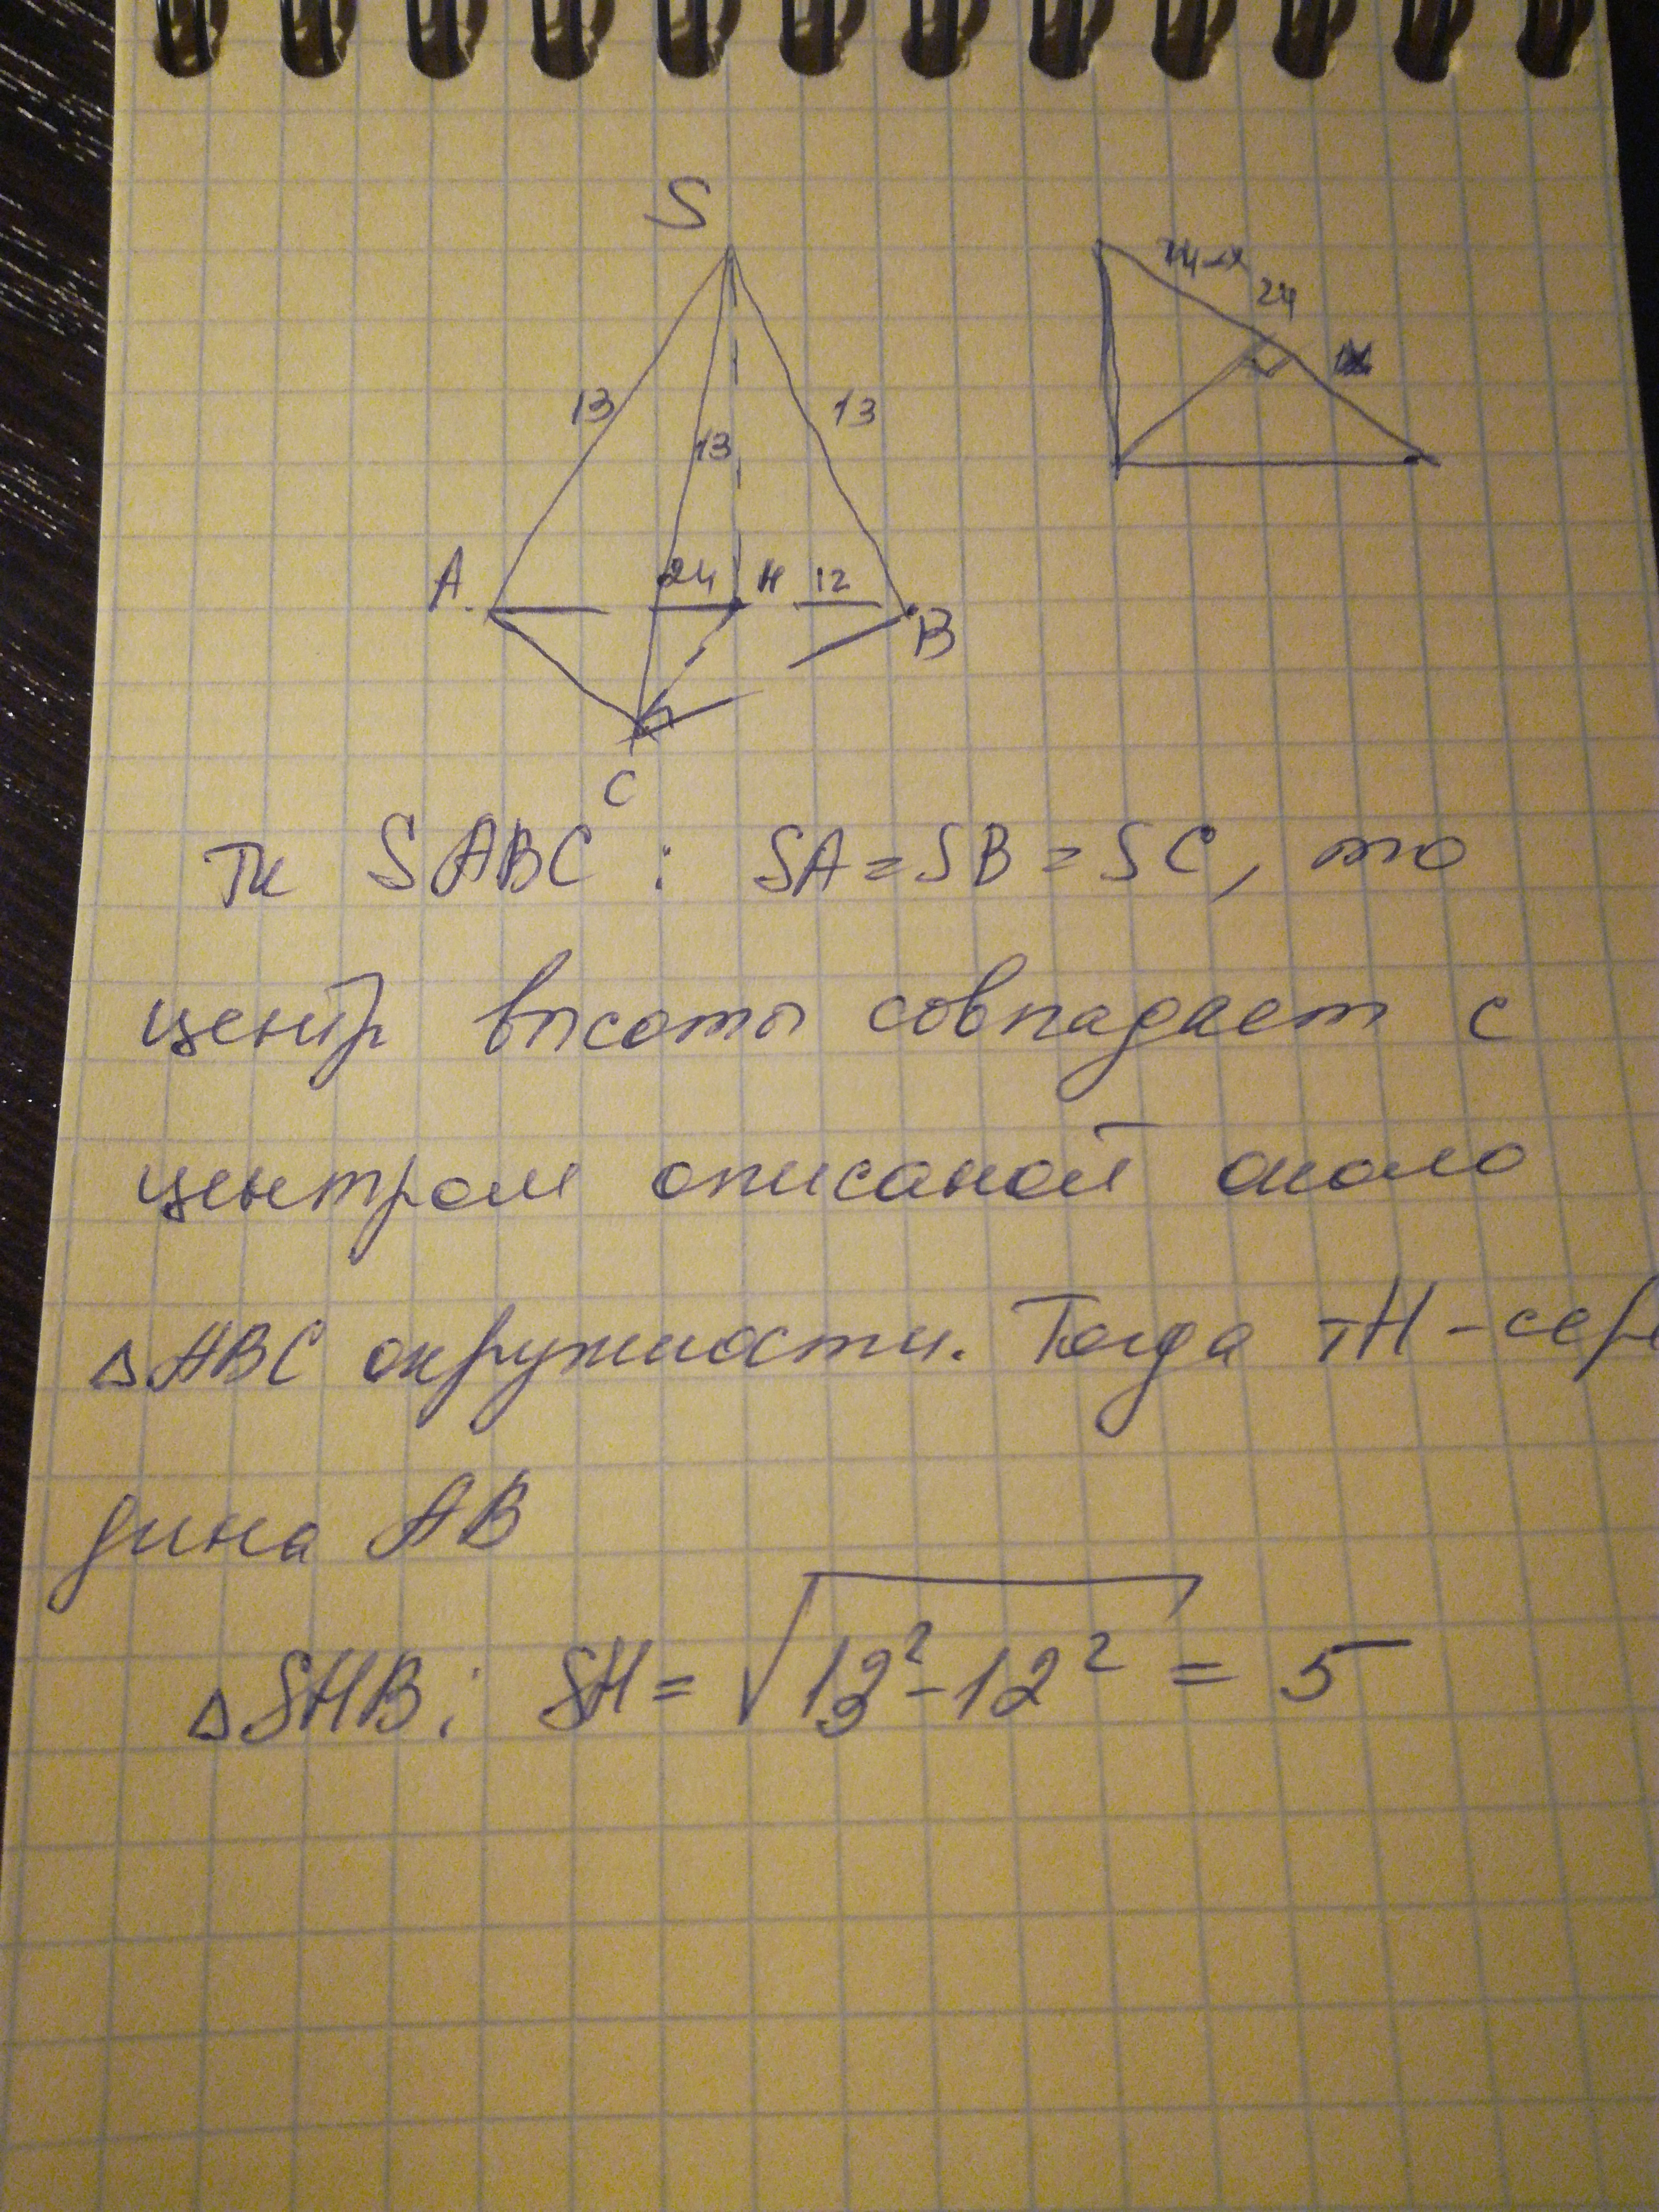 S
24
13
13
13
A
24
H
12
B
C
тк SABC : SA = SB = SC, то
центр высоты совпадает с
центром описаной около
△ABC окружности. Тогда тH - сере
дина AB
△SHB: SH = √13² - 12² = 5